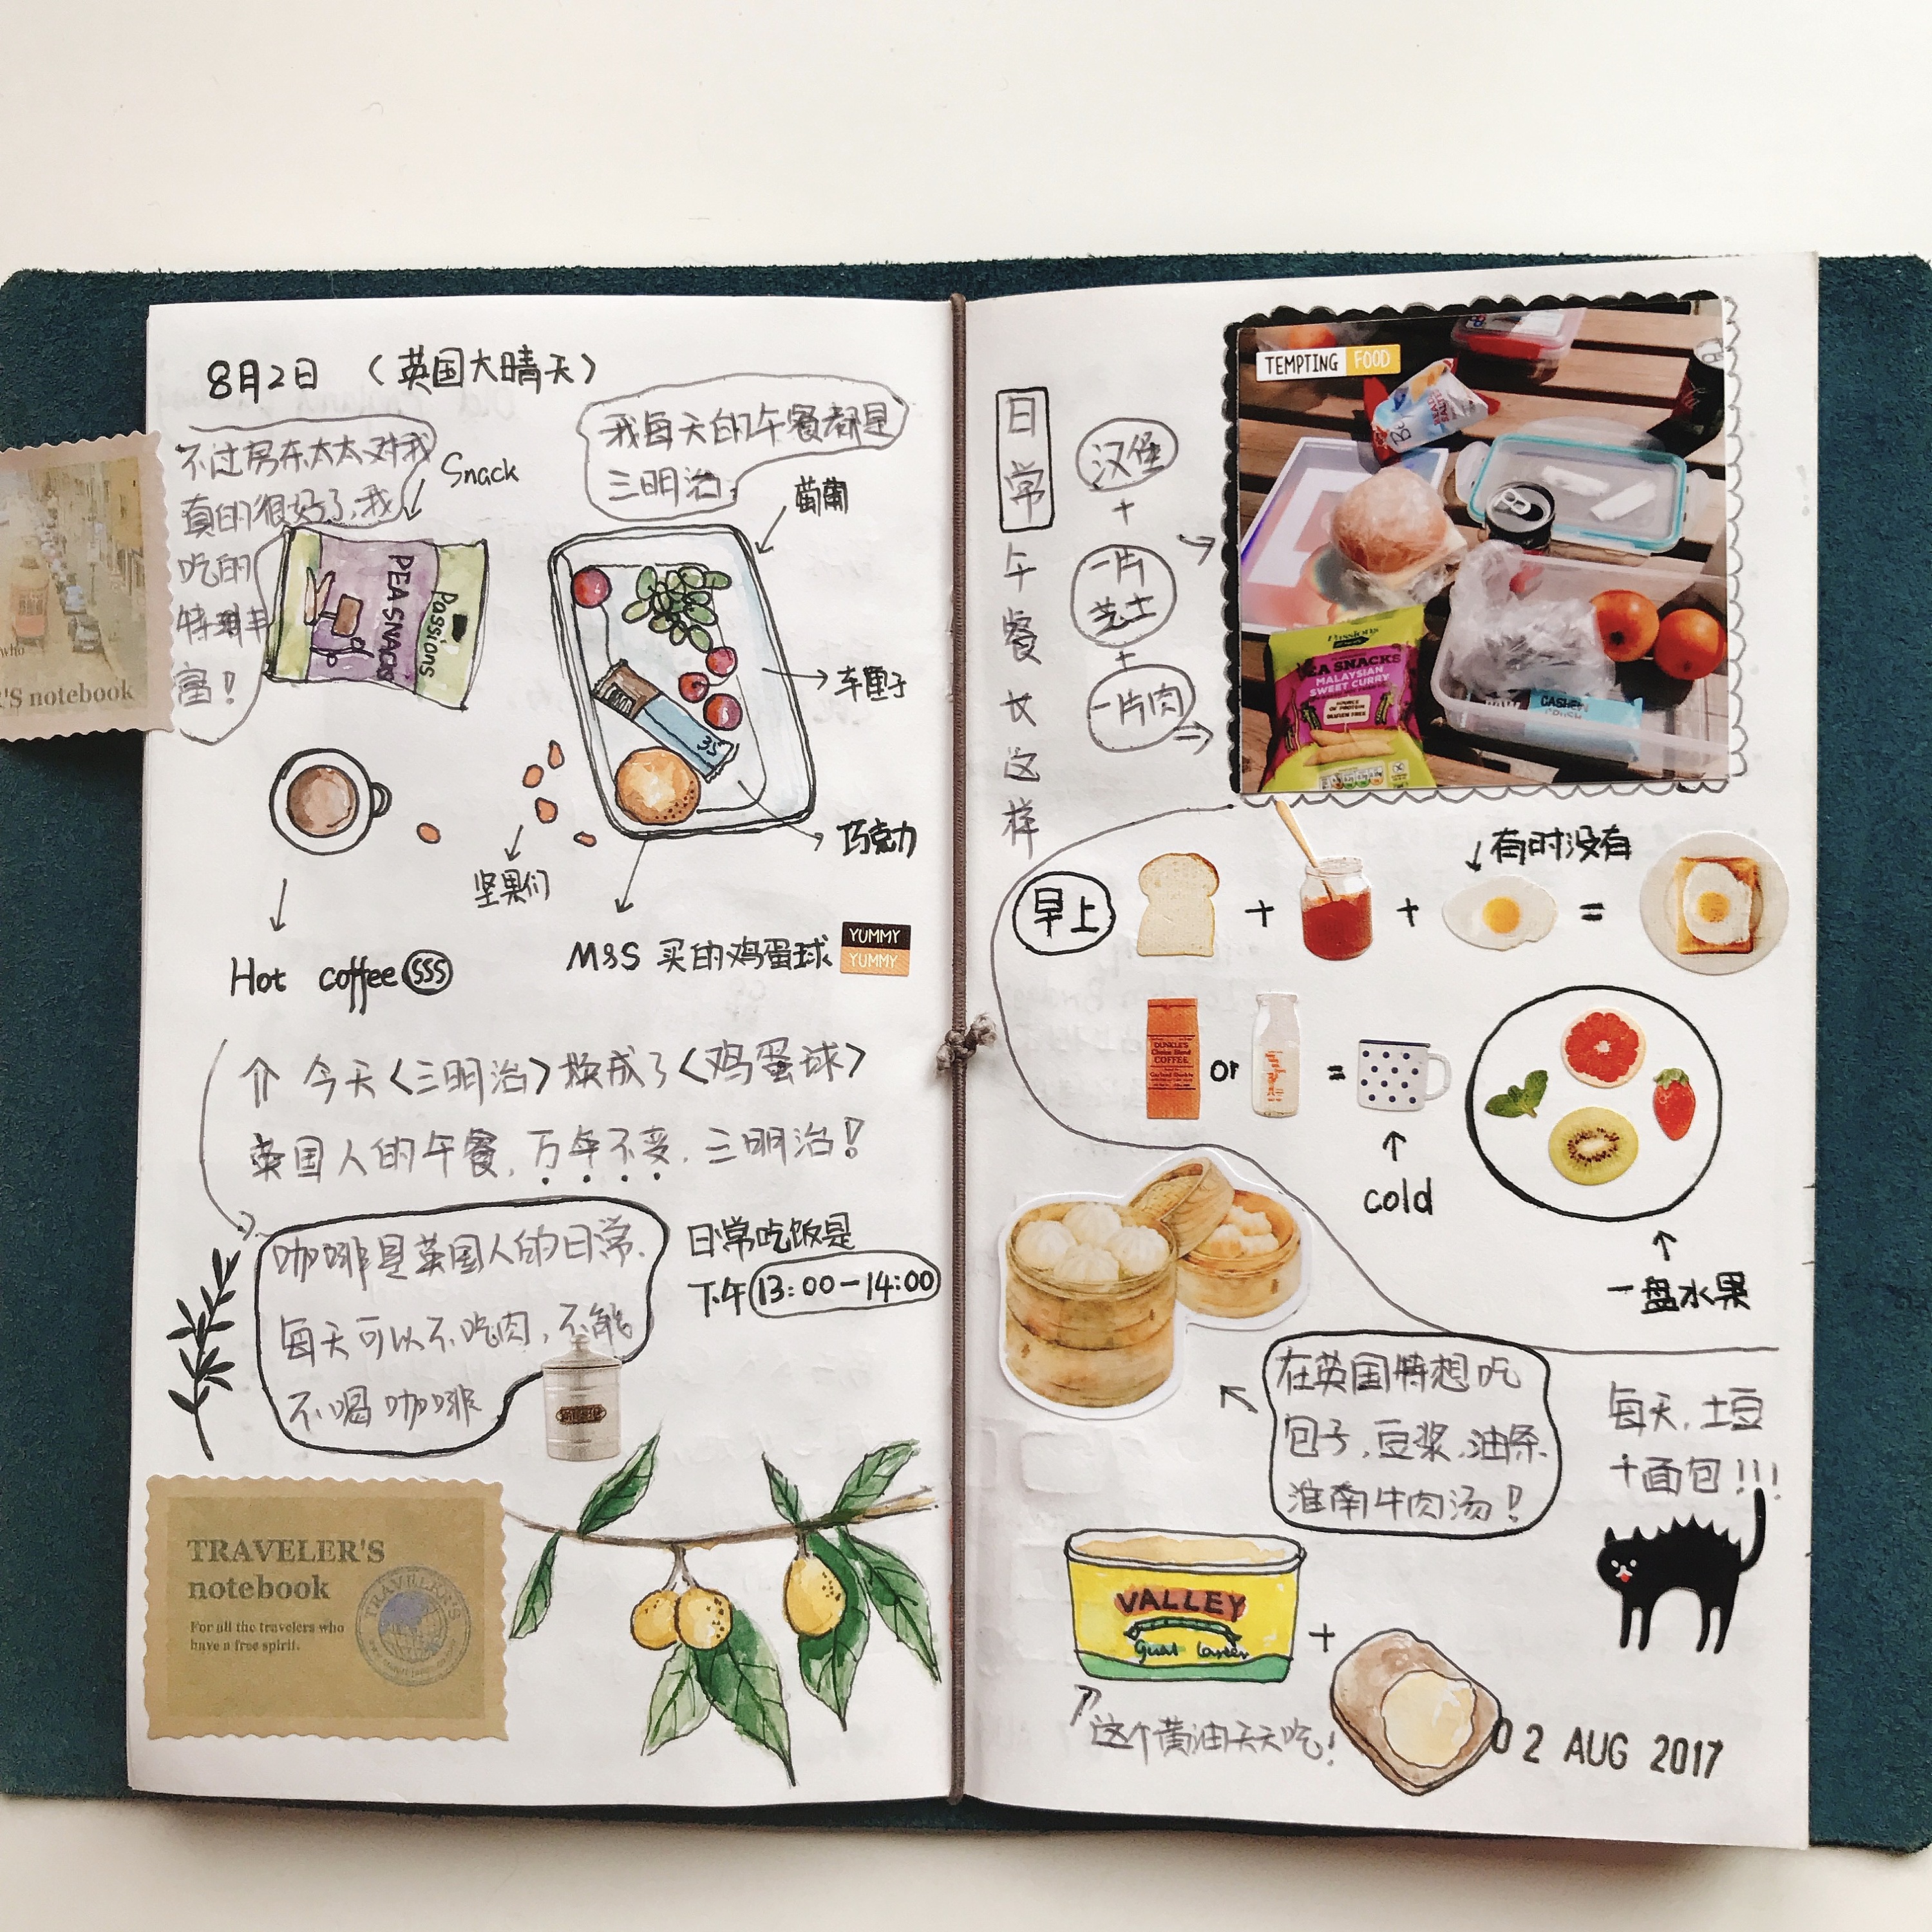 8月2日 （英国大晴天）
不过房东太太对我
真的很好了,我
吃的
特别丰
富!
Snack
PEA SNACKS
Passions
我每天的午餐都是
三明治;
葡萄
车厘子
35
巧克力
坚果们
Hot coffee
M&S 买的鸡蛋球
YUMMY
YUMMY
今天<三明治>换成了<鸡蛋球>
英国人的午餐,万年不变,三明治!
咖啡是英国人的日常.
每天可以不吃肉,不能
不喝咖啡
日常吃饭是
下午 13:00-14:00
who
R'S notebook
TRAVELER'S
notebook
For all the travelers who
have a free spirit.
TRAVELER'S
日常午餐长这样
汉堡
+
一片
芝士
+
一片肉
TEMPTING FOOD
Passions
PEA SNACKS
MALAYSIAN
SWEET CURRY
SOURCE
OF PROTEIN
GLUTEN FREE
CASHEW
早上
+
+
有时没有
=
COFFEE
or
=
cold
一盘水果
在英国特想吃
包子,豆浆,油条
淮南牛肉汤!
每天,土豆
+面包!!!
VALLEY
+
这个黄油天天吃!
02 AUG 2017